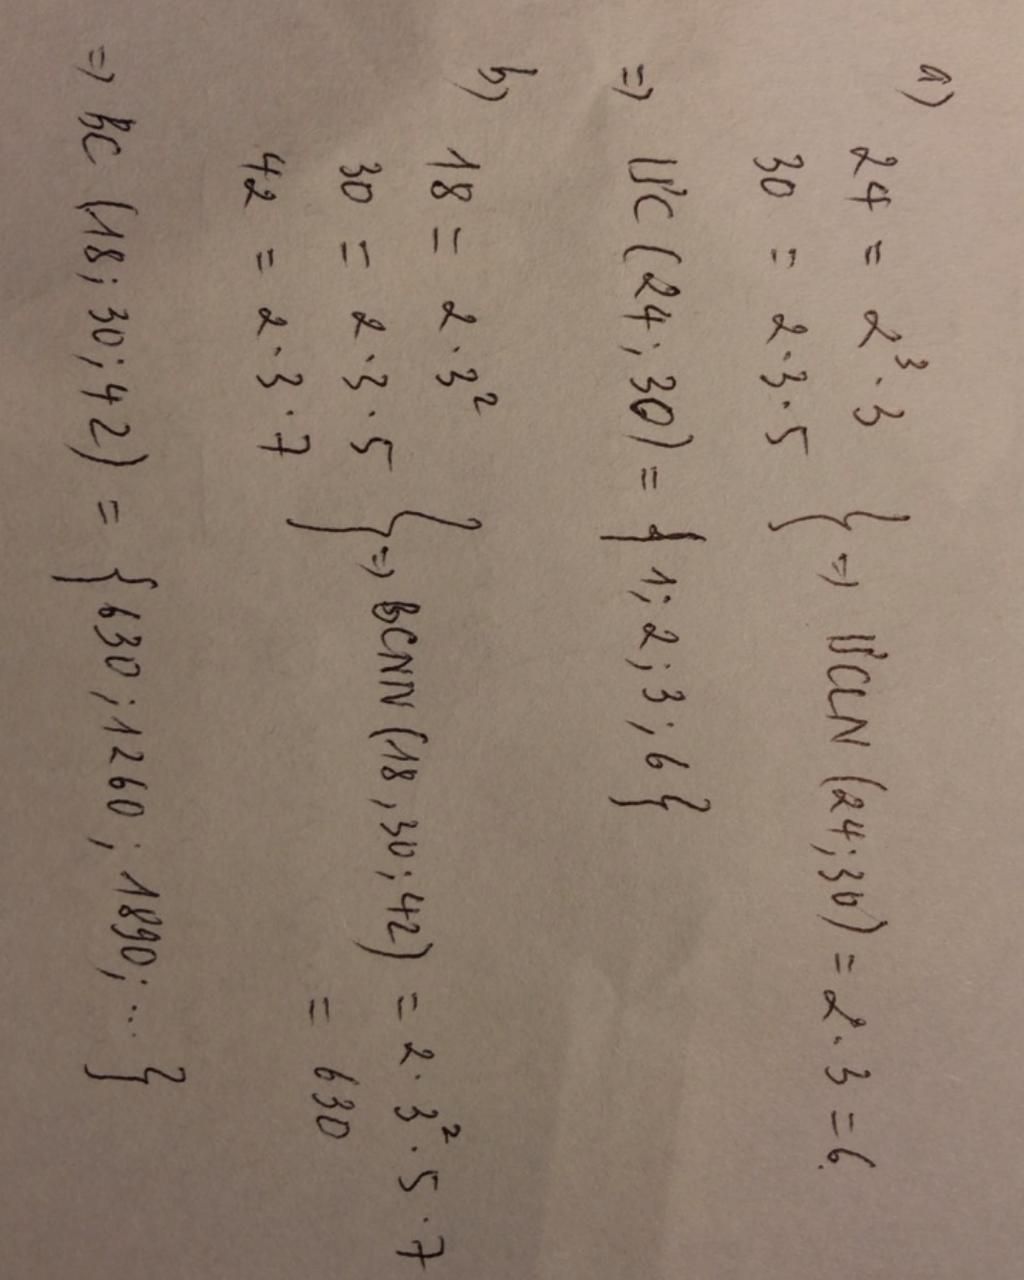 a) 24 = 2³ · 3
30 = 2 · 3 · 5 } => ƯCLN (24; 30) = 2 · 3 = 6
=> ƯC (24; 30) = { 1; 2; 3; 6 }
b) 18 = 2 · 3²
30 = 2 · 3 · 5 } => BCNN (18; 30; 42) = 2 · 3² · 5 · 7
42 = 2 · 3 · 7 = 630
=> BC (18; 30; 42) = { 630; 1260; 1890; ... }